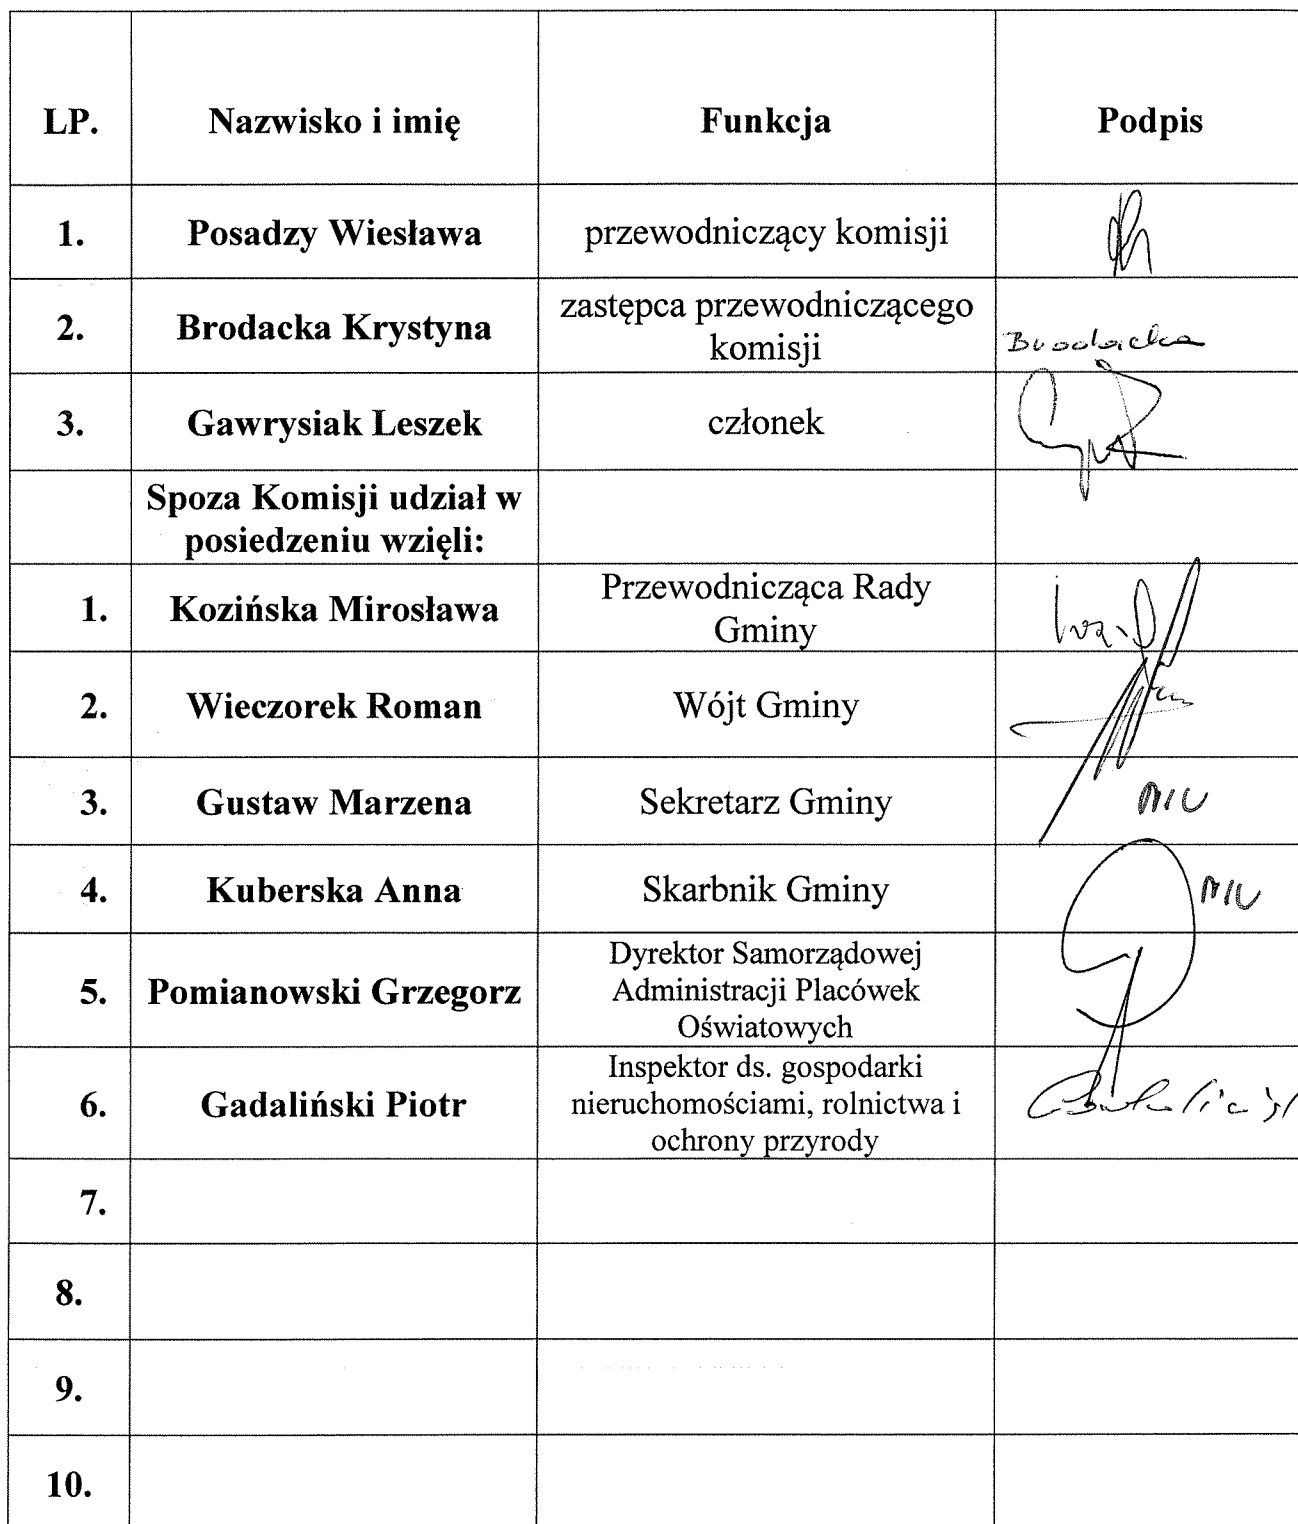 LP. Nazwisko i imię Funkcja Podpis
1. Posadzy Wiesława przewodniczący komisji
2. Brodacka Krystyna zastępca przewodniczącego
komisji Brodacka
3. Gawrysiak Leszek członek
Spoza Komisji udział w
posiedzeniu wzięli:
1. Kozińska Mirosława Przewodnicząca Rady
Gminy
2. Wieczorek Roman Wójt Gminy
3. Gustaw Marzena Sekretarz Gminy
4. Kuberska Anna Skarbnik Gminy
5. Pomianowski Grzegorz Dyrektor Samorządowej
Administracji Placówek
Oświatowych
6. Gadaliński Piotr Inspektor ds. gospodarki
nieruchomościami, rolnictwa i
ochrony przyrody
7.
8.
9.
10.